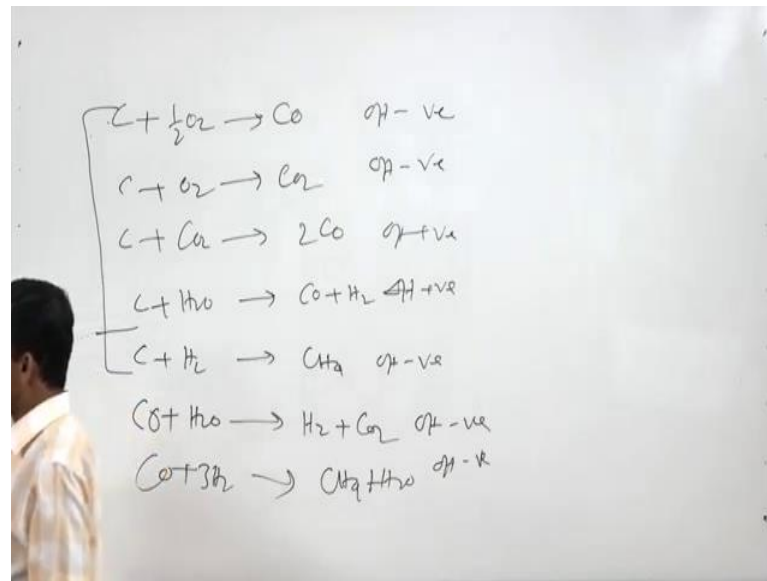 C + ½O2 → CO ΔH - ve
C + O2 → CO2 ΔH - ve
C + CO2 → 2CO ΔH + ve
C + H2O → CO + H2 ΔH + ve
C + H2 → CH4 ΔH - ve
CO + H2O → H2 + CO2 ΔH - ve
CO + 3H2 → CH4 + H2O ΔH - ve